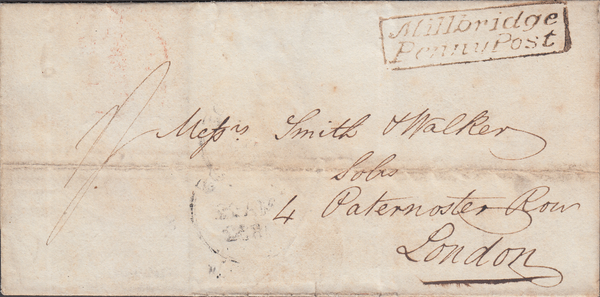 Millbridge
Penny Post
Messrs Smith & Walker
Solrs
4 Paternoster Row
London